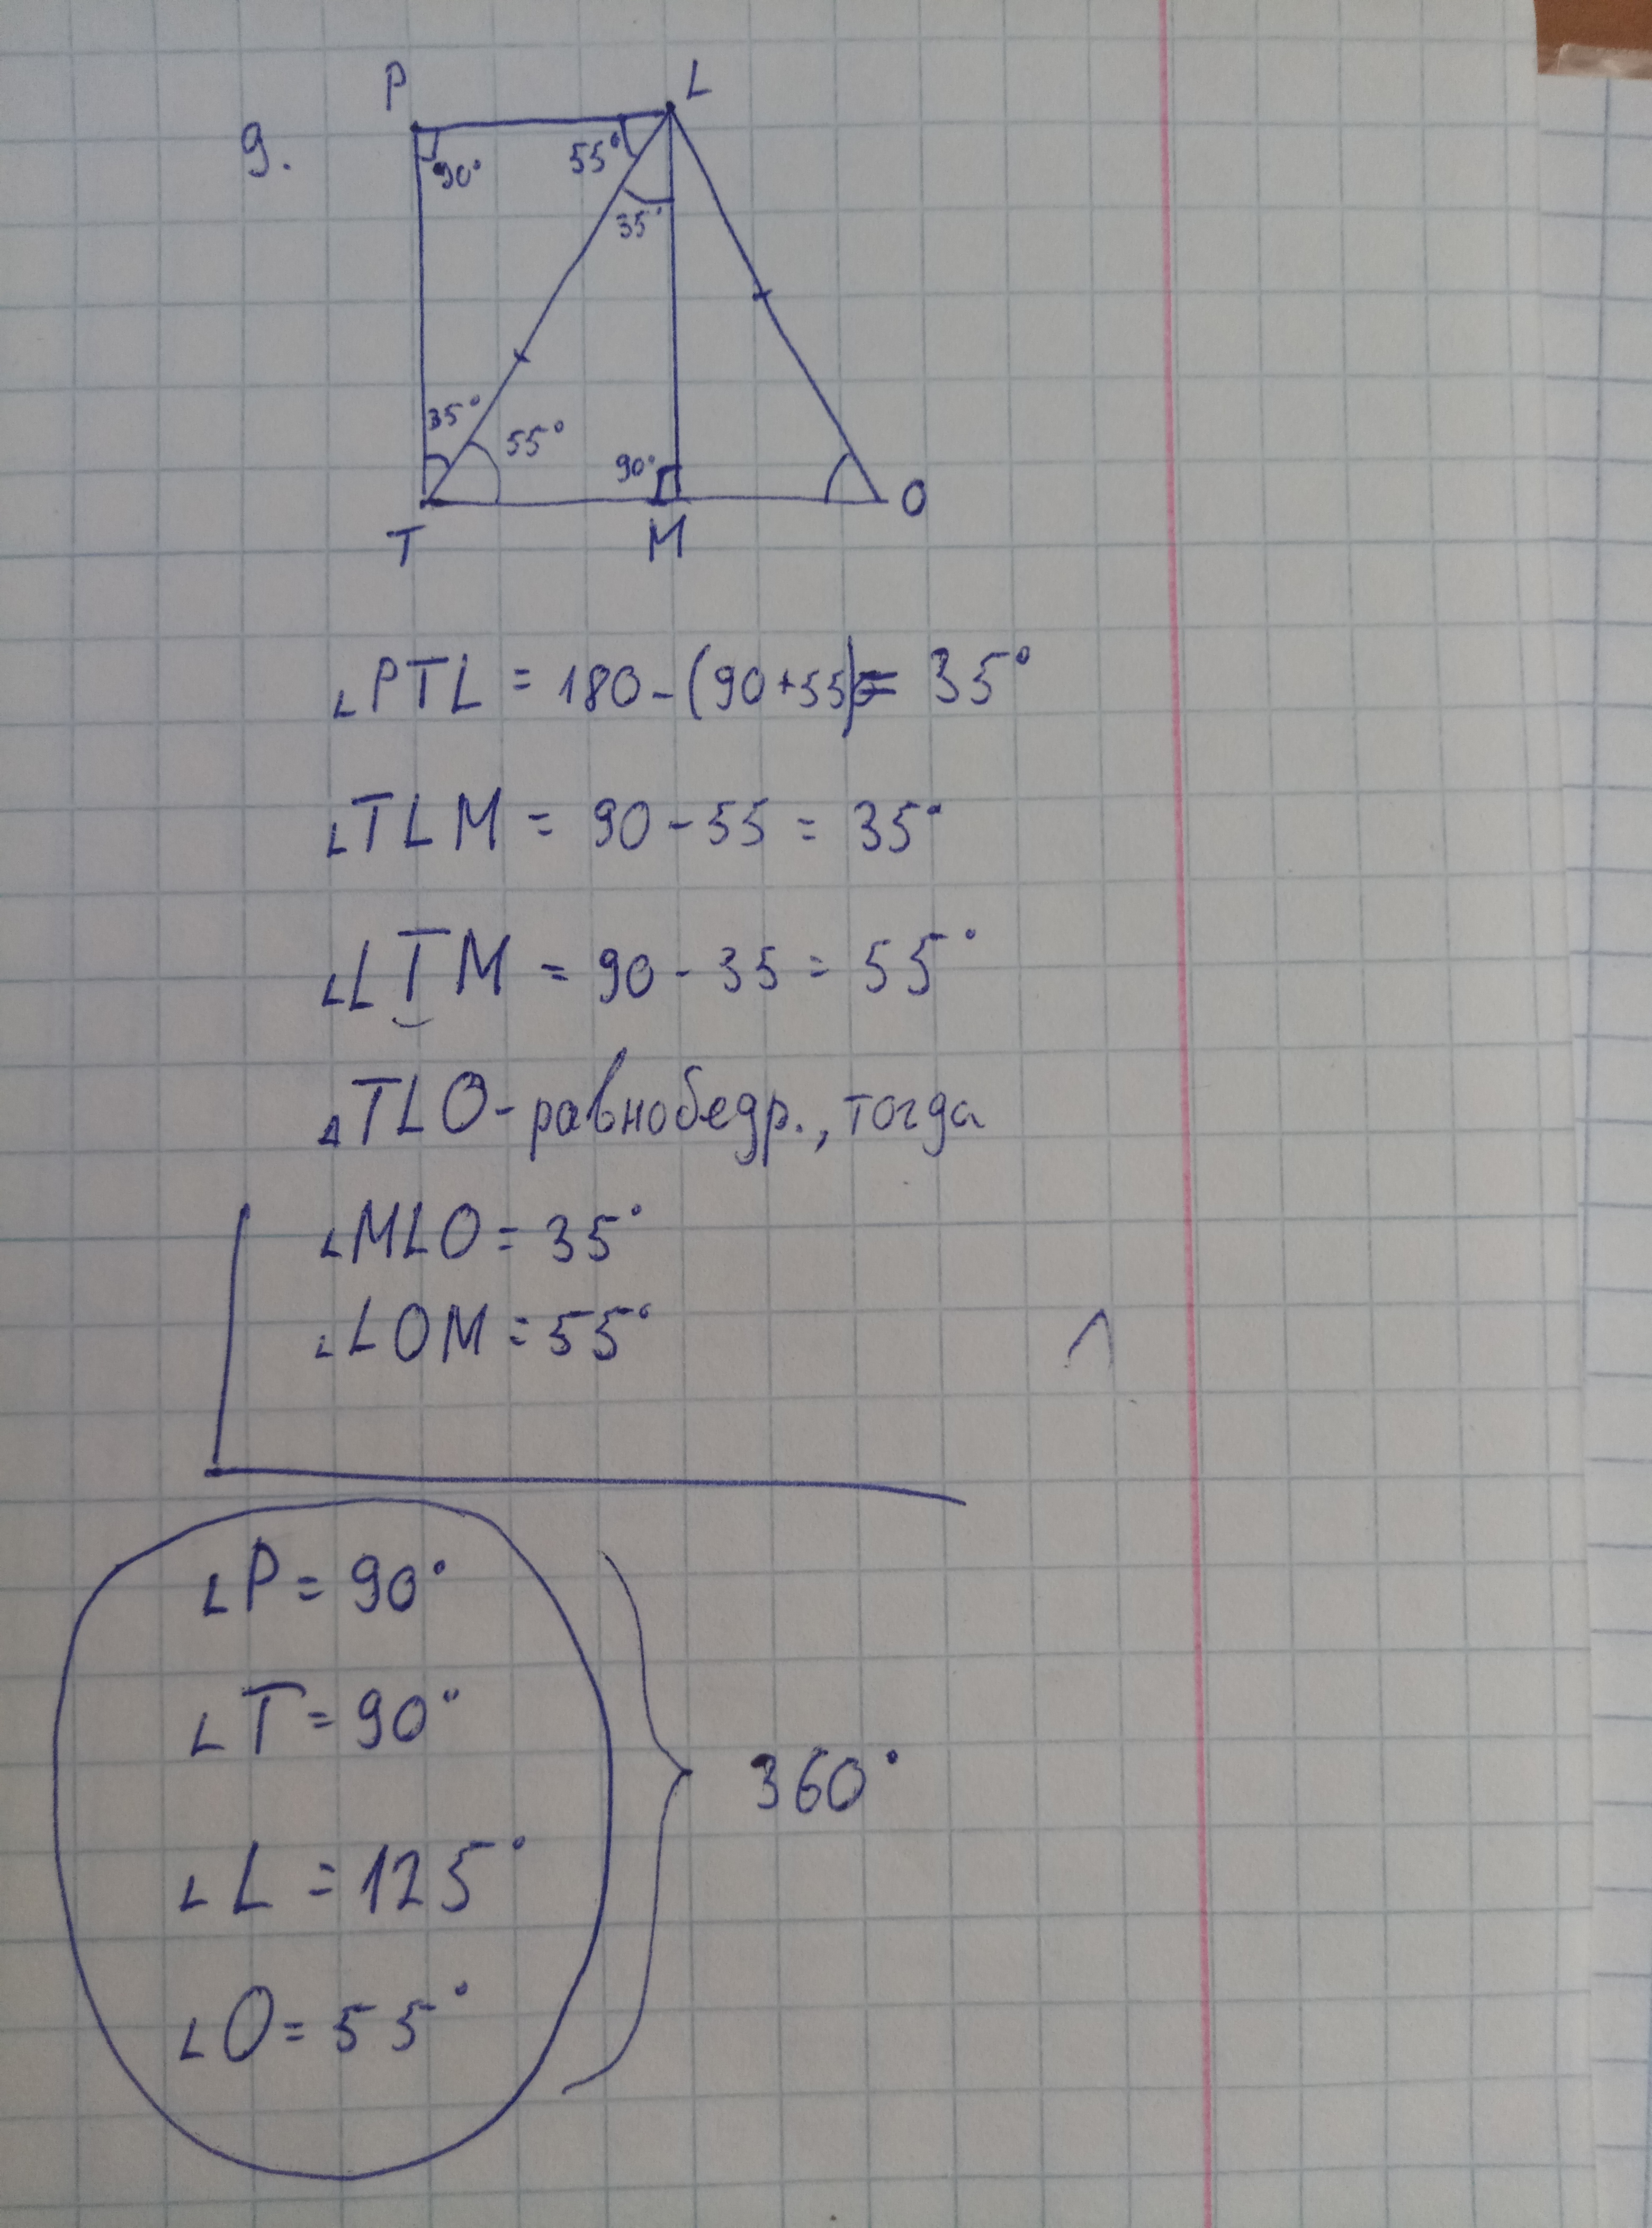 9.
P L
90° 55°
35°
35° 55° 90°
T M O
∠PTL = 180 - (90+55) = 35°
∠TLM = 90 - 55 = 35°
∠LTM = 90 - 35 = 55°
△TLO - равнобедр., тогда
∠MLO = 35°
∠LOM = 55°
∠P = 90°
∠T = 90°
∠L = 125°
∠O = 55°
360°